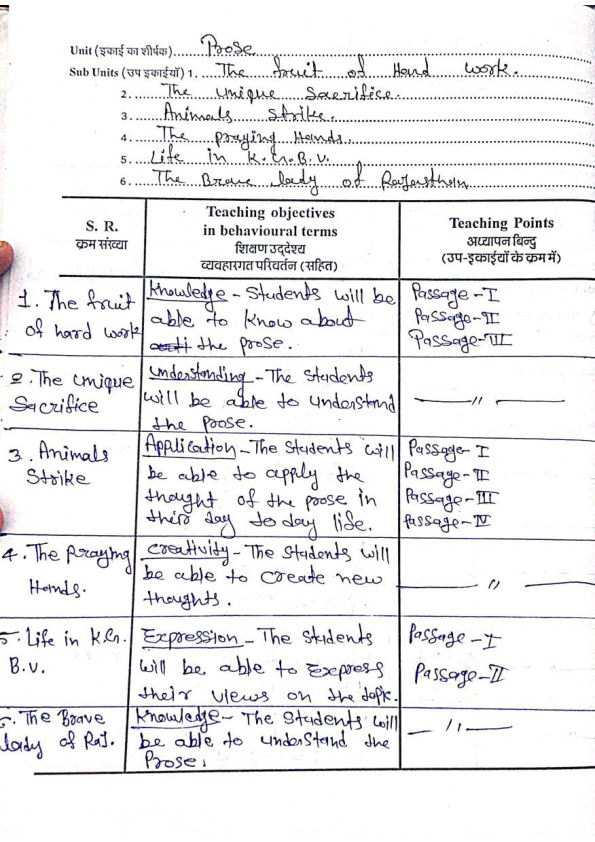 Unit (इकाई का शीर्षक)..... Prose
Sub Units (उप इकाईयाँ) 1. The fruit of Hard work.
2. The Unique Sacrifice.
3. Animals Strike.
4. The praying Hands.
5. Life in K.G.B.V.
6. The Brave lady of Rajasthan
S. R.
क्रम संख्या
Teaching objectives
in behavioural terms
शिक्षण उद्देश्य
व्यवहारगत परिवर्तन (सहित)
Teaching Points
अध्यापन बिन्दु
(उप-इकाईयों के क्रम में)
1. The fruit
of hard work
Knowledge - Students will be
able to know about
the prose.
Passage - I
Passage - II
Passage - III
2. The Unique
Sacrifice
Understanding - The Students
will be able to understand
the prose.
— 〃 —
3. Animals
Strike
Application - The Students will
be able to apply the
thought of the prose in
their day to day life.
Passage - I
Passage - II
Passage - III
Passage - IV
4. The Praying
Hands.
Creativity - The Students will
be able to create new
thoughts.
— 〃 —
5. Life in K.G.
B.V.
Expression - The Students
will be able to Express
their views on the topic.
Passage - I
Passage - II
6. The Brave
lady of Raj.
Knowledge - The Students will
be able to understand the
Prose.
— 〃 —